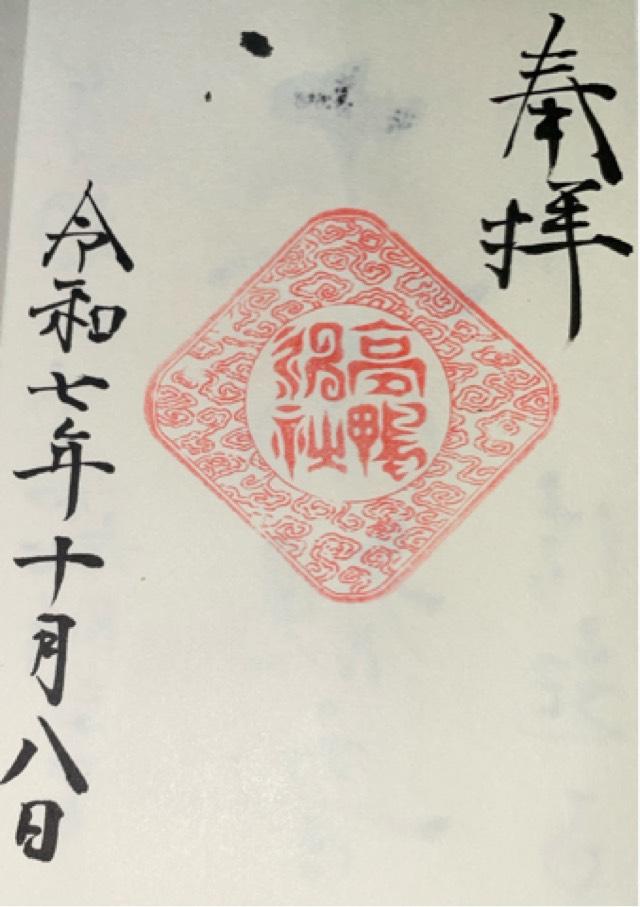 奉拝
高鴨
神社
令和七年十月八日